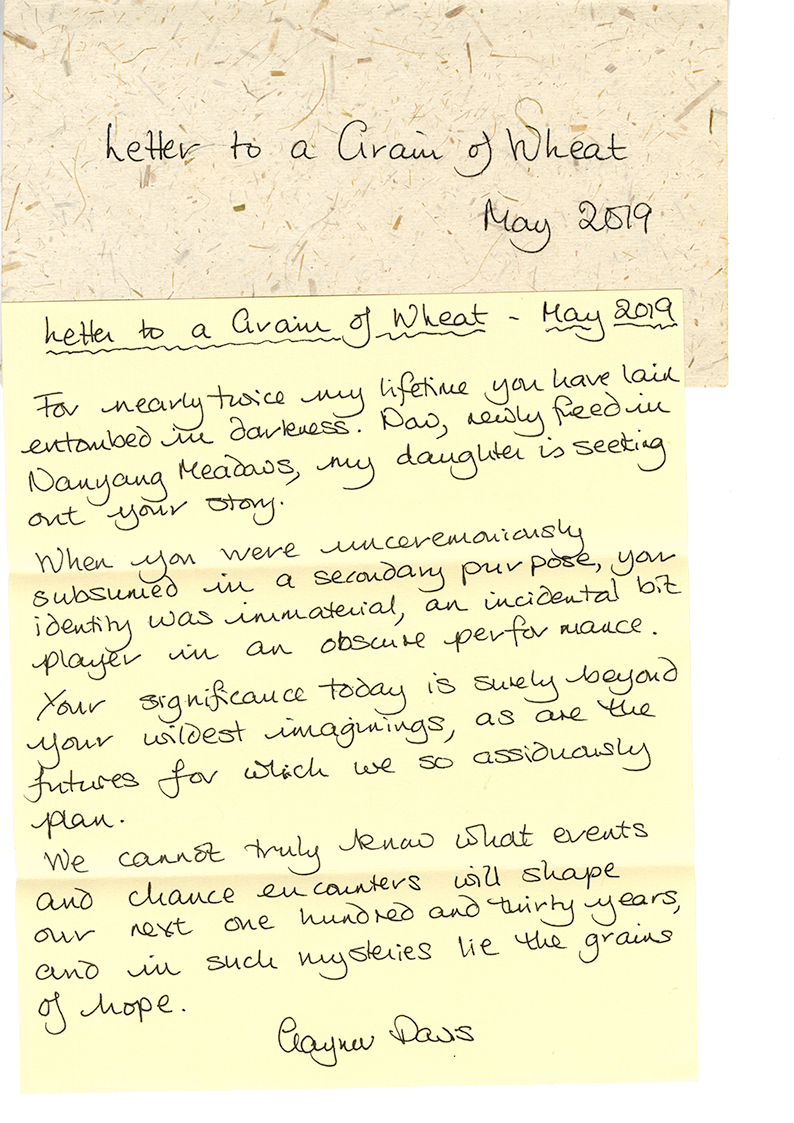 Letter to a Grain of Wheat
May 2019
Letter to a Grain of Wheat - May 2019
For nearly twice my lifetime you have lain
entombed in darkness. Now, newly freed in
Nanyang Meadows, my daughter is seeking
out your story.
When you were unceremoniously
subsumed in a secondary purpose, your
identity was immaterial, an incidental bit
player in an obscure performance.
Your significance today is surely beyond
your wildest imaginings, as are the
futures for which we so assiduously
plan.
We cannot truly know what events
and chance encounters will shape
our next one hundred and thirty years,
and in such mysteries lie the grains
of hope.
Gaynor Davis